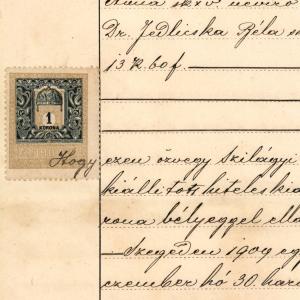 Anna szív. neviró
Dr. Jedlicska Béla
13 K bof.
1
KORONA
Hogy ezen özvegy Szilágyi
kiállitott hiteles kia
rona bélyeggel ella
Szegeden 1909 eg
czember hó 30. har